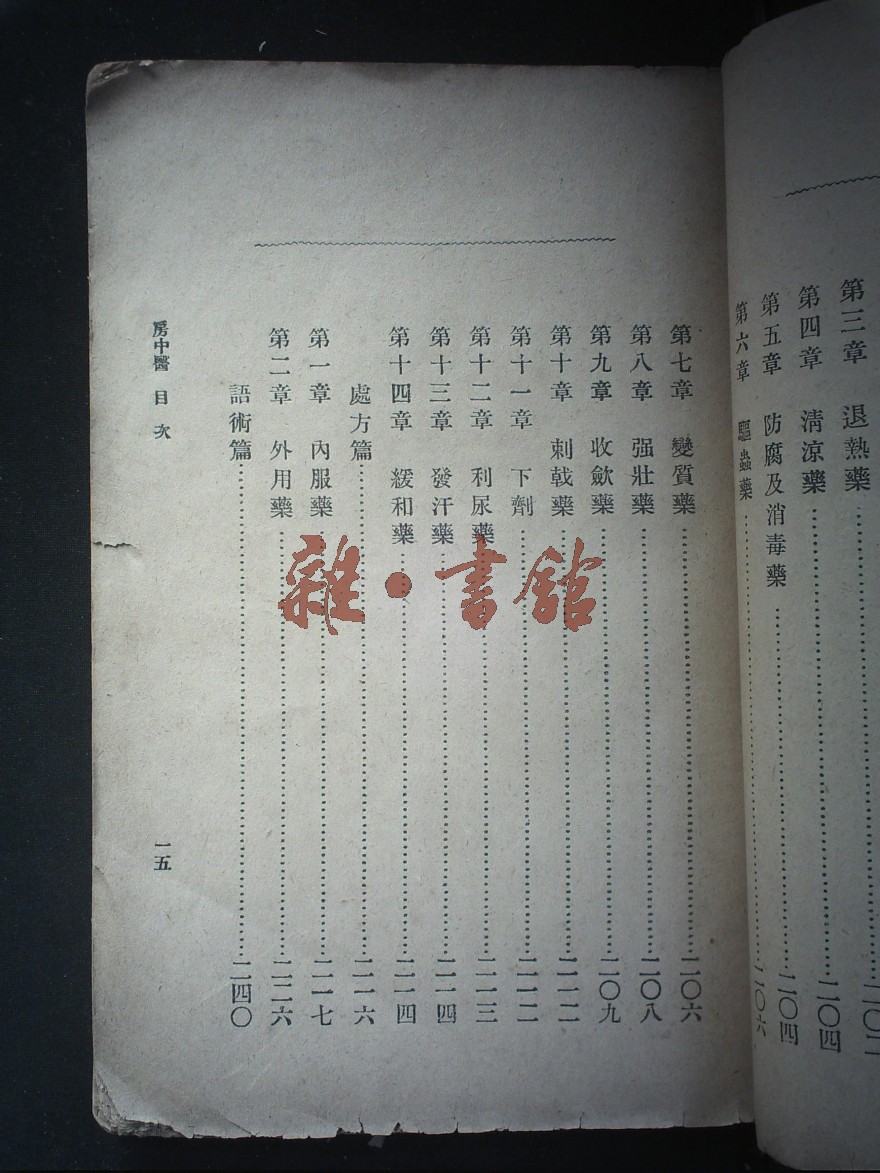 第三章 退熱藥
第四章 清涼藥……二〇四
第五章 防腐及消毒藥……二〇四
第六章 驅蟲藥……二〇六
第七章 變質藥……二〇六
第八章 强壯藥……二〇八
第九章 收歛藥……二〇九
第十章 刺戟藥……二一二
第十一章 下劑……二一二
第十二章 利尿藥……二一三
第十三章 發汗藥……二一四
第十四章 緩和藥……二一四
處方篇……二一六
第一章 內服藥……二一七
第二章 外用藥……二二六
語術篇……二四〇
房中醫 目次 一五
雜·書館